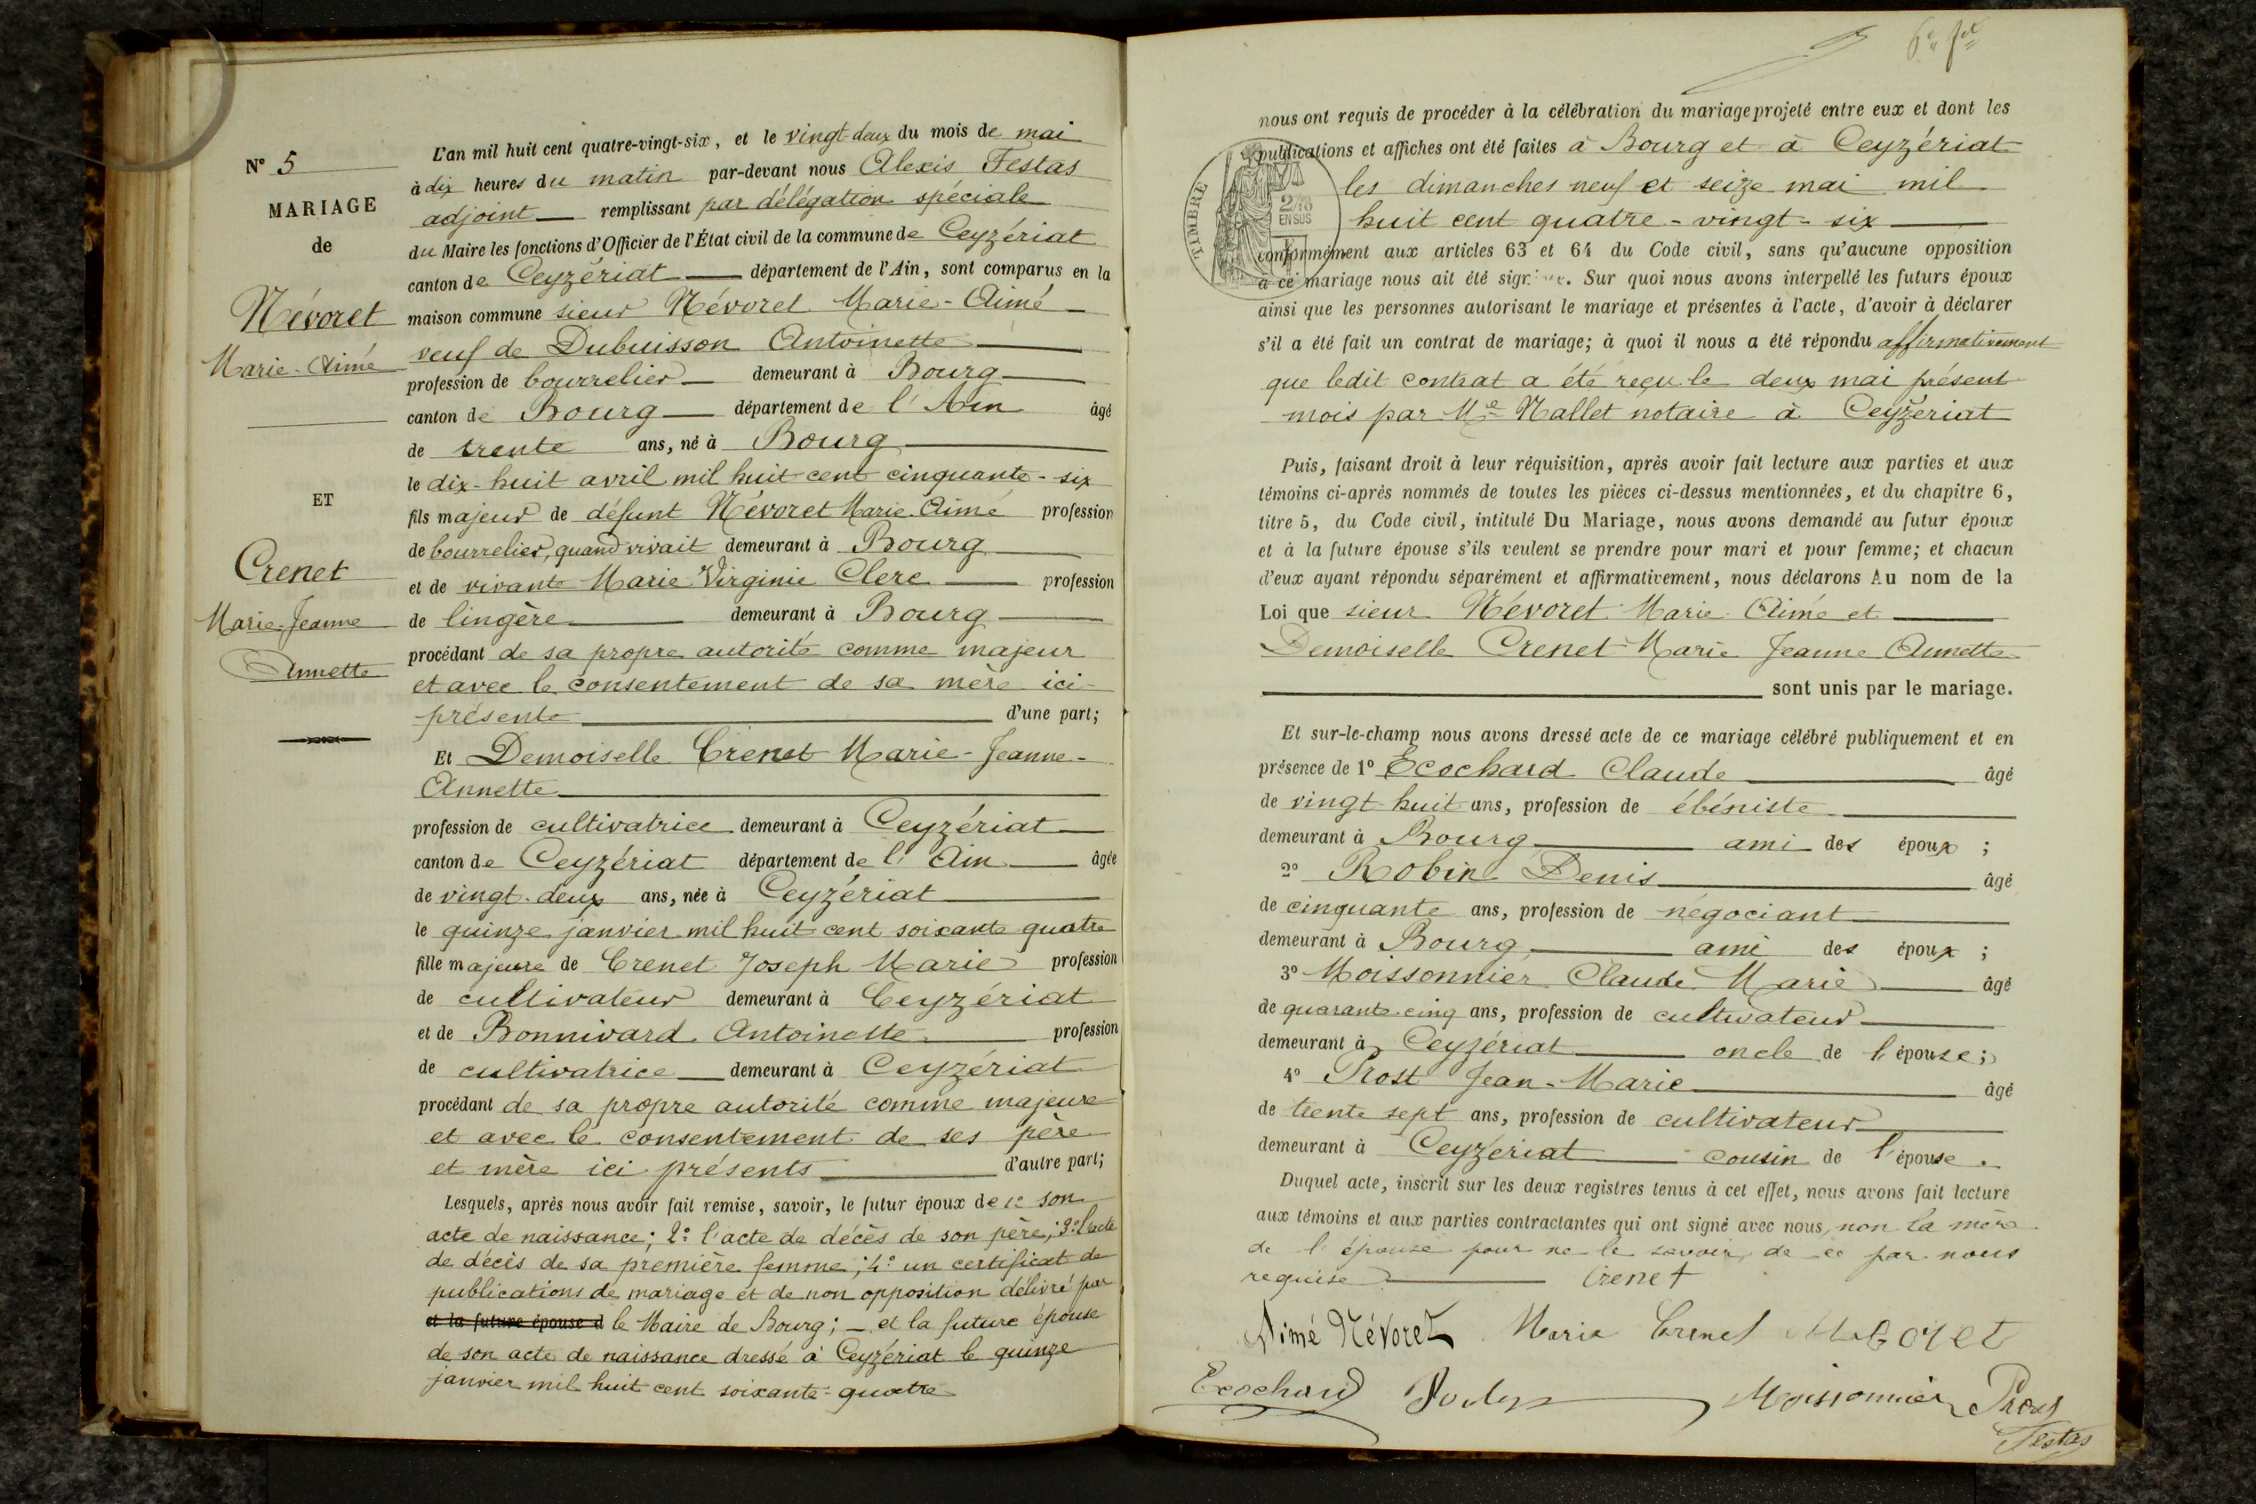 N° 5
MARIAGE
de
Névoret
Marie-Aimé
ET
Crenet
Marie-Jeanne
Annette
L'an mil huit cent quatre-vingt-six, et le vingt-deux du mois de mai
à dix heures du matin par-devant nous Alexis Festas
adjoint remplissant par délégation spéciale
du Maire les fonctions d'Officier de l'État civil de la commune de Ceyzériat
canton de Ceyzériat département de l'Ain, sont comparus en la
maison commune sieur Névoret Marie-Aimé
veuf de Dubuisson Antoinette
profession de bourrelier demeurant à Bourg
canton de Bourg département de l'Ain âgé
de trente ans, né à Bourg
le dix-huit avril mil huit cent cinquante-six
fils majeur de défunt Névoret Marie Aimé profession
de bourrelier, quand vivait demeurant à Bourg
et de vivante Marie Virginie Clerc profession
de lingère demeurant à Bourg
procédant de sa propre autorité comme majeur
et avec le consentement de sa mère ici-
présente d'une part;
Et Demoiselle Crenet Marie-Jeanne-
Annette
profession de cultivatrice demeurant à Ceyzériat
canton de Ceyzériat département de l'Ain âgée
de vingt-deux ans, née à Ceyzériat
le quinze janvier mil huit cent soixante quatre
fille majeure de Crenet Joseph Marie profession
de cultivateur demeurant à Ceyzériat
et de Bonnivard Antoinette profession
de cultivatrice demeurant à Ceyzériat
procédant de sa propre autorité comme majeure
et avec le consentement de ses père
et mère ici présents d'autre part;
Lesquels, après nous avoir fait remise, savoir, le futur époux de 1° son
acte de naissance; 2° l'acte de décès de son père; 3° l'acte
de décès de sa première femme; 4° un certificat de
publications de mariage et de non opposition délivré par
et la future épouse d le Maire de Bourg; — et la future épouse
de son acte de naissance dressé à Ceyzériat le quinze
janvier mil huit cent soixante-quatre
nous ont requis de procéder à la célébration du mariage projeté entre eux et dont les
publications et affiches ont été faites à Bourg et à Ceyzériat
les dimanches neuf et seize mai mil
huit cent quatre-vingt-six
TIMBRE
EN SUS
conformément aux articles 63 et 64 du Code civil, sans qu'aucune opposition
à ce mariage nous ait été signifiée. Sur quoi nous avons interpellé les futurs époux
ainsi que les personnes autorisant le mariage et présentes à l'acte, d'avoir à déclarer
s'il a été fait un contrat de mariage; à quoi il nous a été répondu affirmativement
que ledit contrat a été reçu le deux mai présent
mois par Me Nallet notaire à Ceyzériat
Puis, faisant droit à leur réquisition, après avoir fait lecture aux parties et aux
témoins ci-après nommés de toutes les pièces ci-dessus mentionnées, et du chapitre 6,
titre 5, du Code civil, intitulé Du Mariage, nous avons demandé au futur époux
et à la future épouse s'ils veulent se prendre pour mari et pour femme; et chacun
d'eux ayant répondu séparément et affirmativement, nous déclarons Au nom de la
Loi que sieur Névoret Marie Aimé et
Demoiselle Crenet Marie Jeanne Annette
sont unis par le mariage.
Et sur-le-champ nous avons dressé acte de ce mariage célébré publiquement et en
présence de 1° Ecochard Claude âgé
de vingt-huit ans, profession de ébéniste
demeurant à Bourg ami des époux;
2° Robin Denis âgé
de cinquante ans, profession de négociant
demeurant à Bourg ami des époux;
3° Moissonnier Claude Marie âgé
de quarante-cinq ans, profession de cultivateur
demeurant à Ceyzériat oncle de l'épouse;
4° Prost Jean-Marie âgé
de trente sept ans, profession de cultivateur
demeurant à Ceyzériat cousin de l'épouse.
Duquel acte, inscrit sur les deux registres tenus à cet effet, nous avons fait lecture
aux témoins et aux parties contractantes qui ont signé avec nous, non la mère
de l'épouse pour ne le savoir, de ce par nous
requise Crenet
Aimé Névoret Marie Crenet
Ecochard Moissonnier Prost
Festas